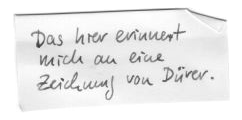 Das hier erinnert
mich an eine
Zeichnung von Dürer.